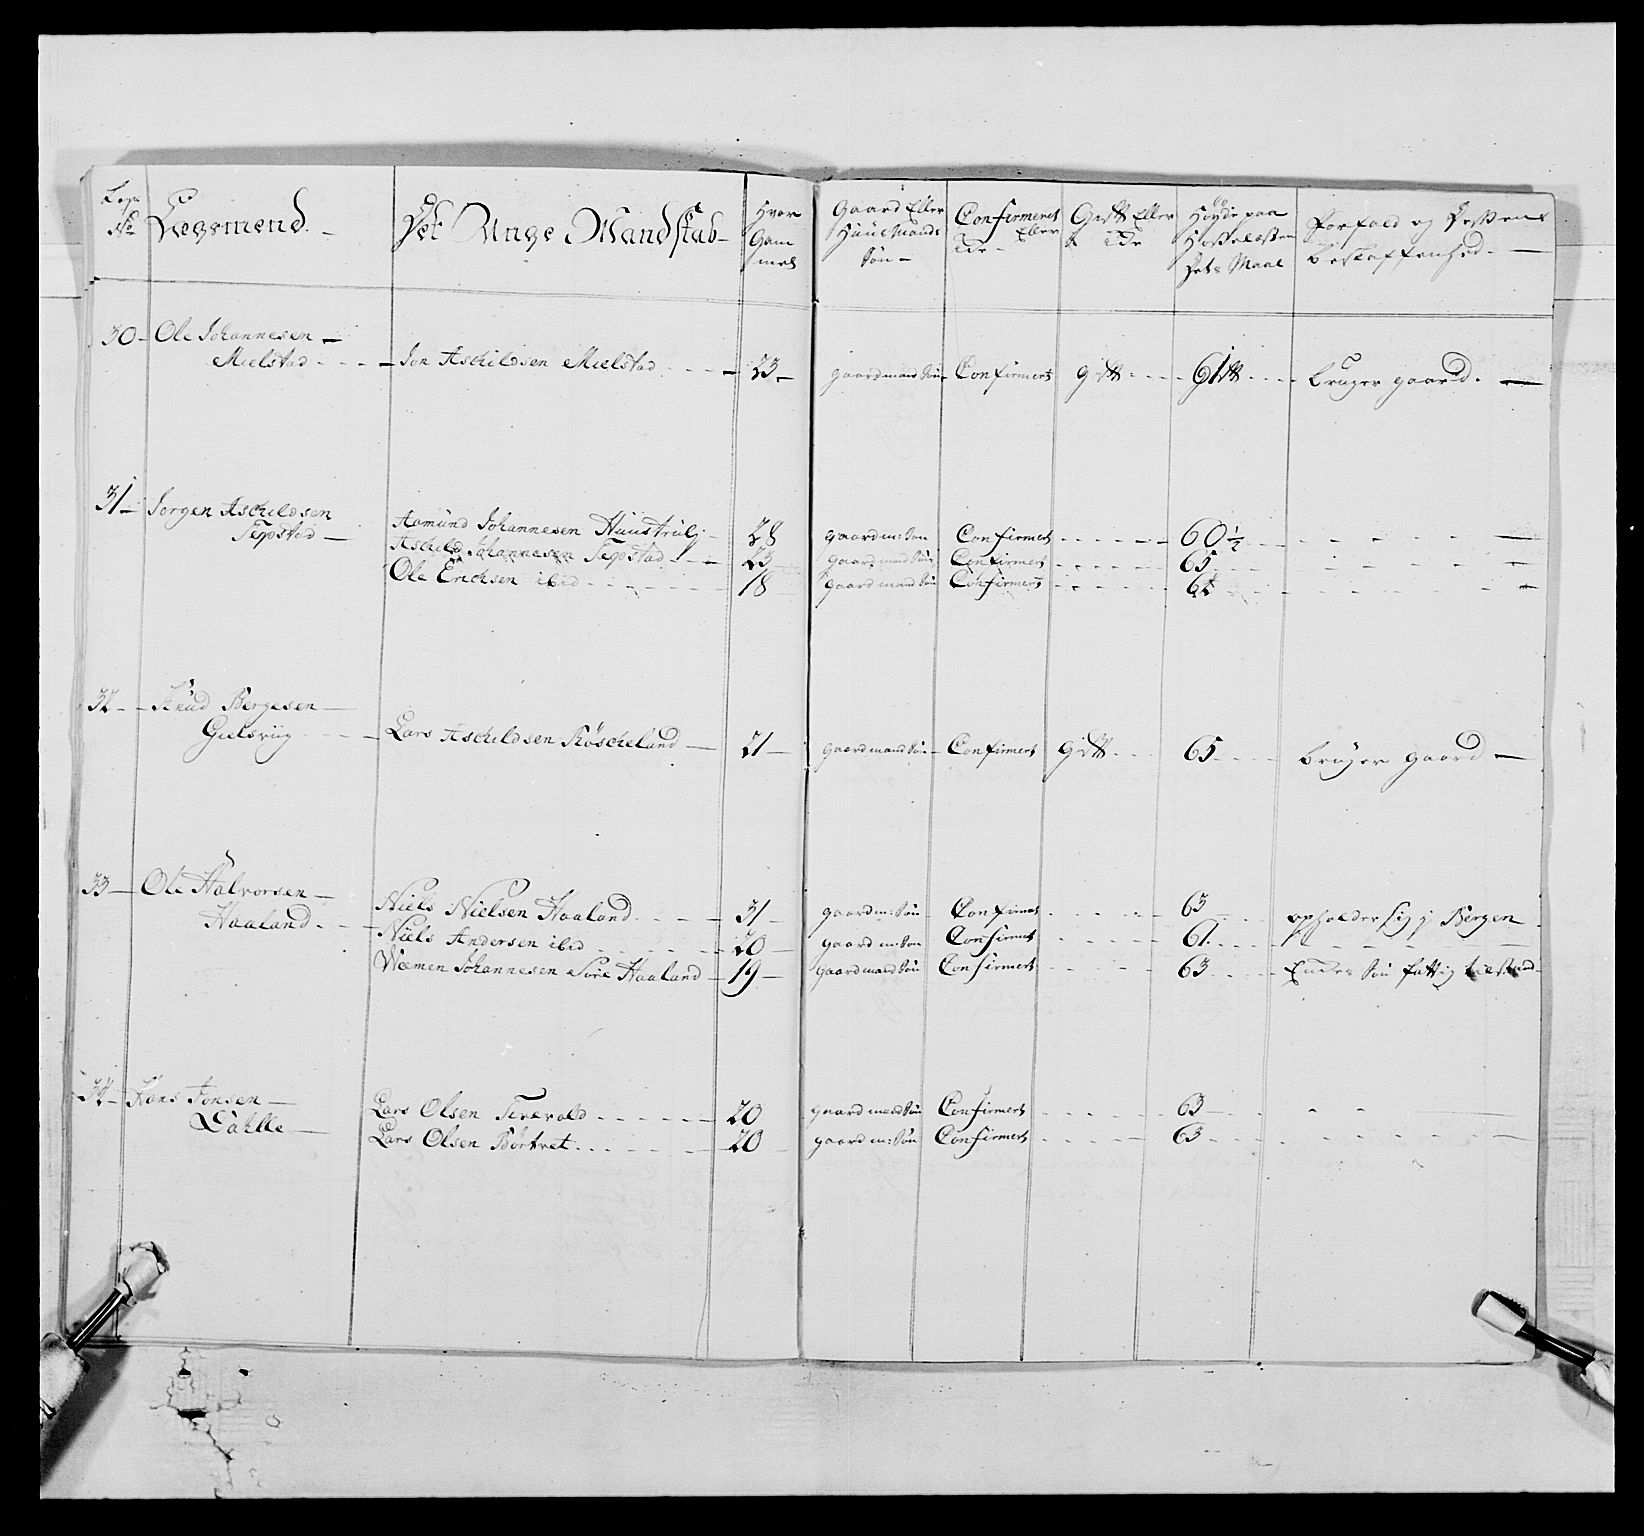 Legs No Lægsmend. Det Unge Mandskab Hvor Gammel Gaard Eller Huus Mands Søn Confirmeret Eller Ey Gift Eller Ey Høyde paa Hosselæsten Dets Maal Forfald og Deßens beskaffenhed.
30 Ole Johannesen
Mielstad Jon Aschildsen Mielstad 23 gaardmand Søn Confirmert gift 61 bruger gaard.
31 Jorgen Aschildsen
Tepstad Aamund Johannesen Huustrulj 28 gaardm: Søn Confirmert 60 1/2
Aschild Johannesen Tepstad 23 gaardmand Søn Confirmert 65
Ole Erichsen ibid 18 gaardmand Søn Confirmert
32 Knud Bergesen
Gielsviig Lars Aschildsen Røscheland 21 gaardmand Søn Confirmert gift 65 bruger gaard
33 Ole Halvorsen
Haaland Niels Nielsen Haaland 31 gaardm: Søn Confirmert 63 opholder sig j Bergen
Niels Andersen ibid 20 gaard m: Søn Confirmert 61
Wemen Johannesen Søre Haaland 19 gaardmand Søn Confirmert 63 Søn fattig tilstand
34 Hans Jonsen
Dahlle Lars Olsen Teverold 20 gaardmand Søn Confirmert 63
Lars Olsen Børtvet 20 gaard m: Søn Confirmert 63